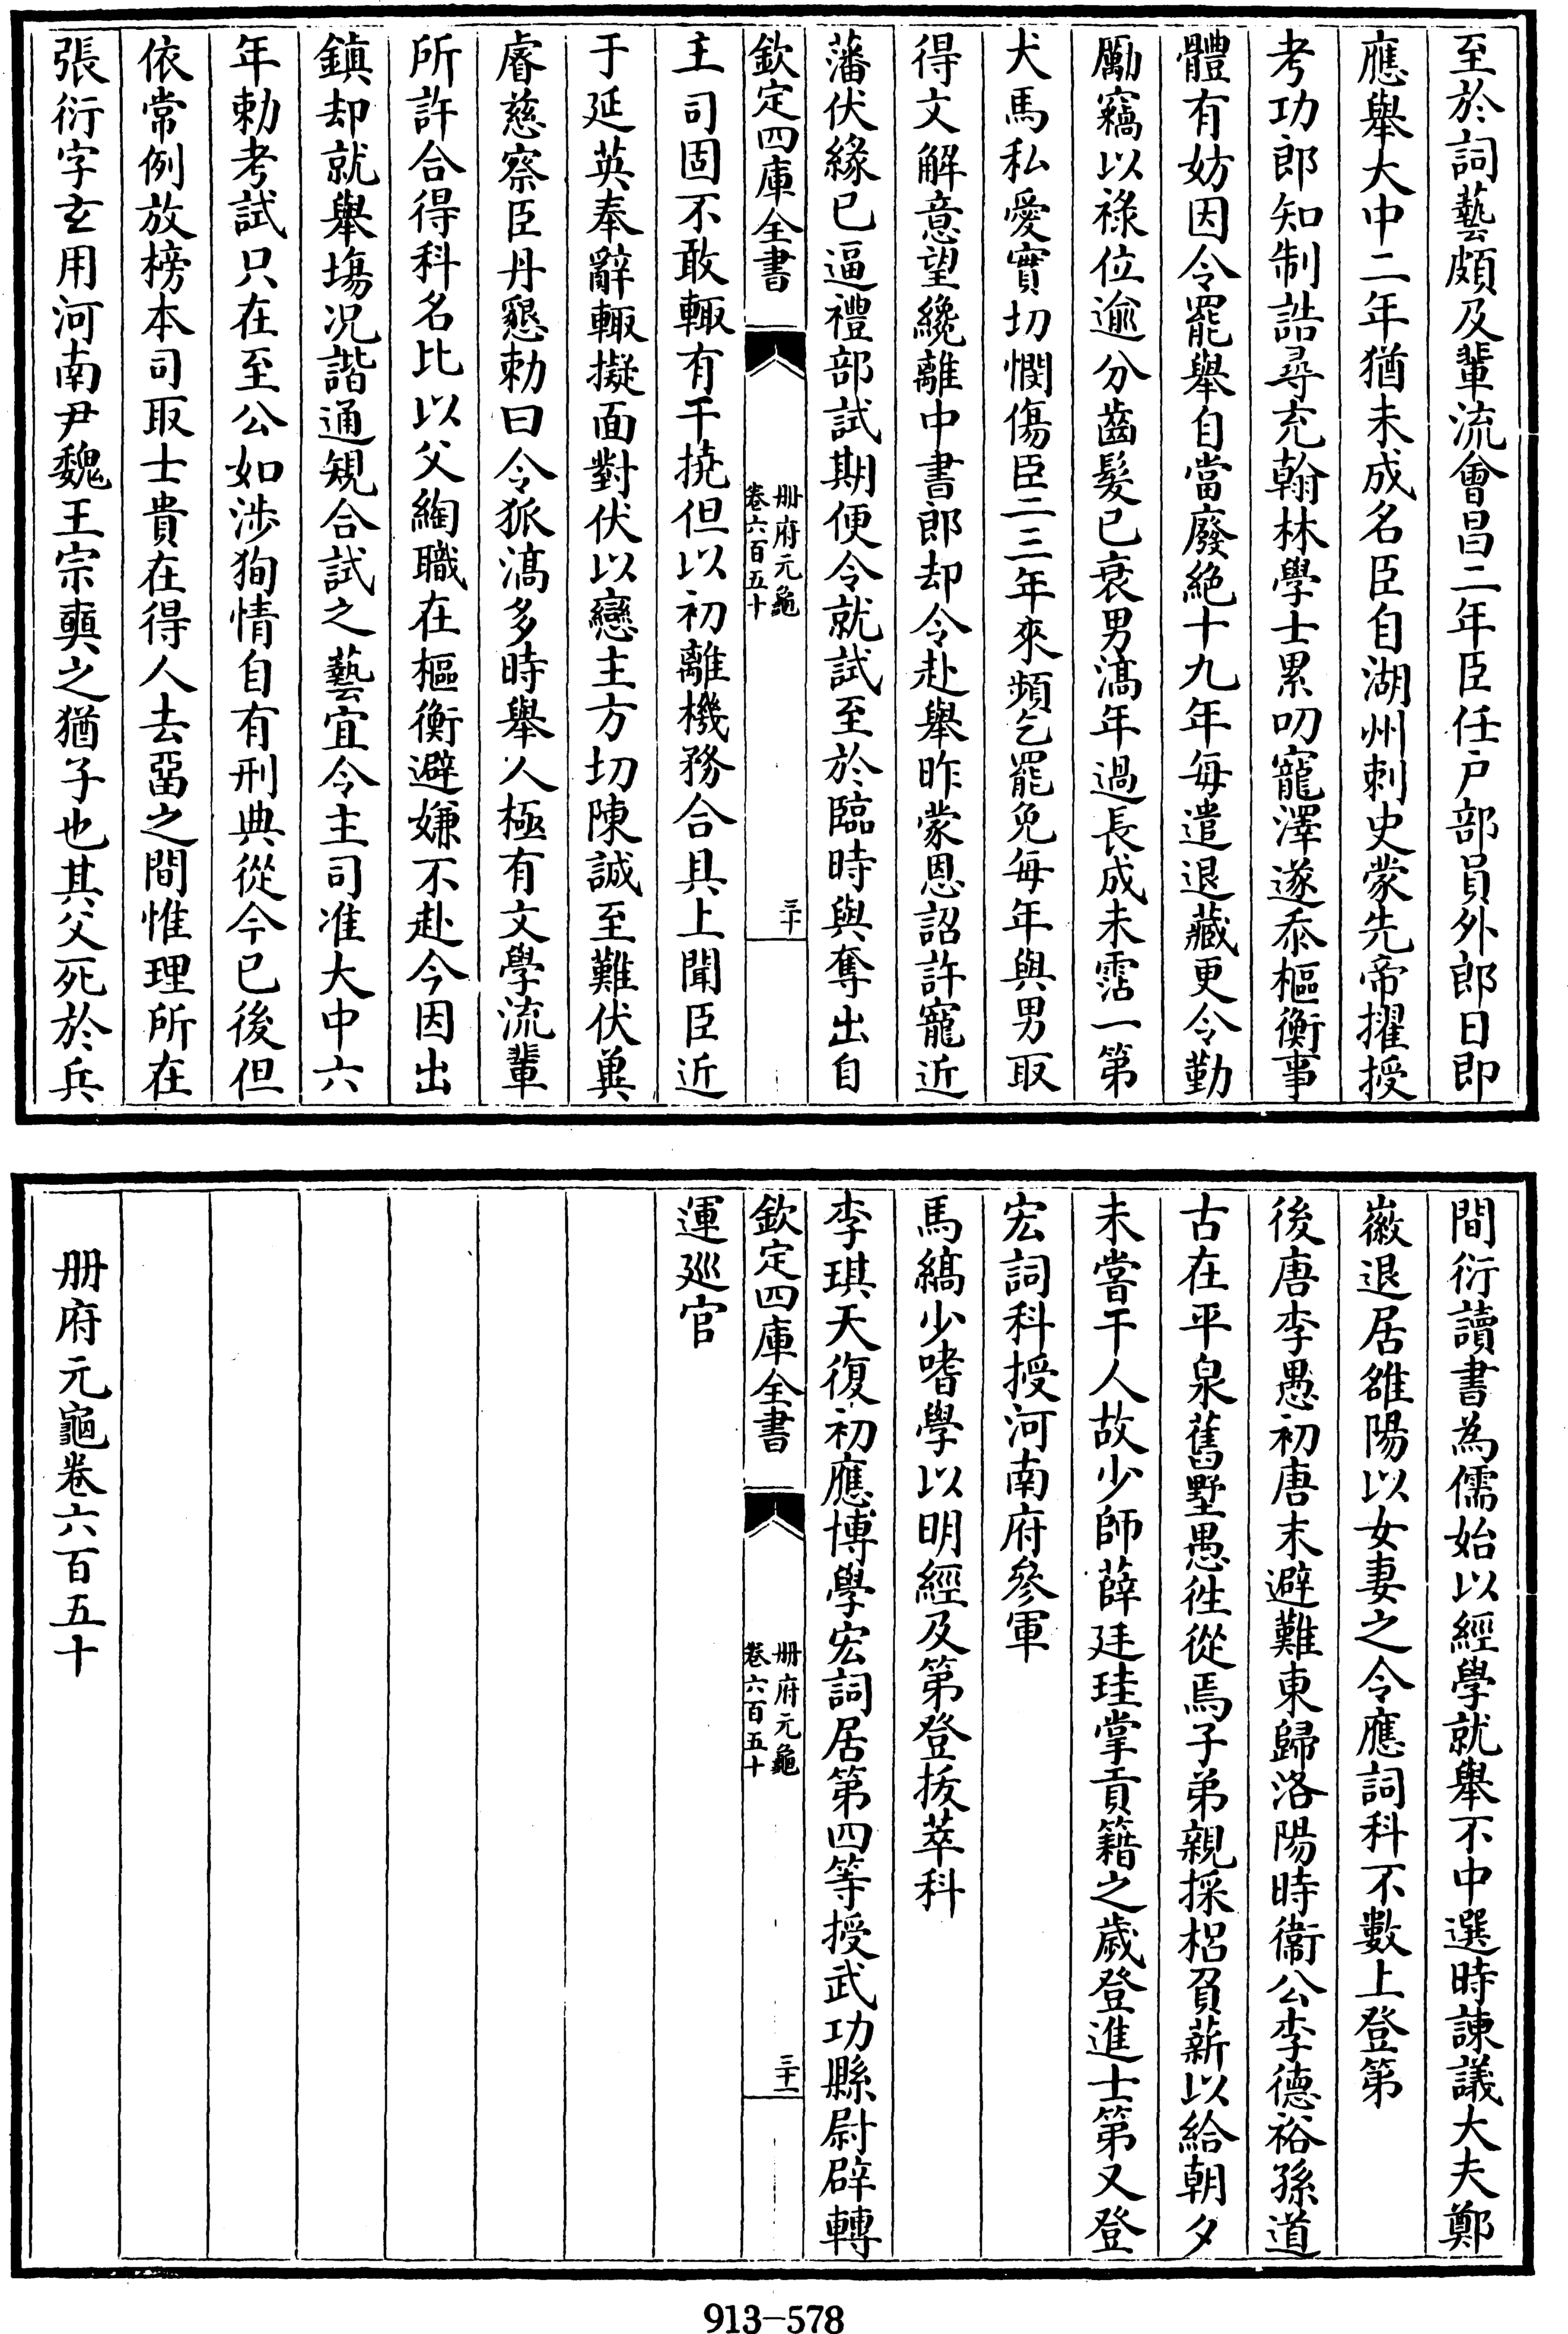 至於詞藝頗及輩流會昌二年臣任户部員外郎日即
應舉大中二年猶未成名臣自湖州刺史蒙先帝擢授
考功郎知制誥尋充翰林學士累叨寵澤遂忝樞衡事
體有妨因令罷舉自當廢絶十九年每遣退藏更令勤
勵竊以祿位逾分齒髮已衰男滈年過長成未霑一第
犬馬私愛實切憫傷臣二三年來頻乞罷免每年與男取
得文解意望纔離中書郎却令赴舉昨蒙恩詔許寵近
藩伏緣已逼禮部試期便令就試至於臨時與奪出自
欽定四庫全書
册府元龜
卷六百五十
三十
主司固不敢輙有干撓但以初離機務合具上聞臣近
于延英奉辭輙擬面對伏以戀主方切陳誠至難伏冀
睿慈察臣丹懇勅曰令狐滈多時舉人極有文學流輩
所許合得科名比以父綯職在樞衡避嫌不赴今因出
鎮却就舉塲况諧通規合試之藝宜令主司准大中六
年勅考試只在至公如涉狥情自有刑典從今已後但
依常例放榜本司取士貴在得人去畱之間惟理所在
張衍字玄用河南尹魏王宗奭之猶子也其父死於兵
間衍讀書為儒始以經學就舉不中選時諫議大夫鄭
徽退居雒陽以女妻之令應詞科不數上登第
後唐李愚初唐末避難東歸洛陽時衞公李德裕孫道
古在平泉舊墅愚徃從焉子弟親採梠負薪以給朝夕
未嘗干人故少師薛廷珪掌貢籍之歲登進士第又登
宏詞科授河南府參軍
馬縞少嗜學以明經及第登拔萃科
李琪天復初應博學宏詞居第四等授武功縣尉辟轉
欽定四庫全書
册府元龜
卷六百五十
三十一
運廵官
册府元龜卷六百五十
913-578